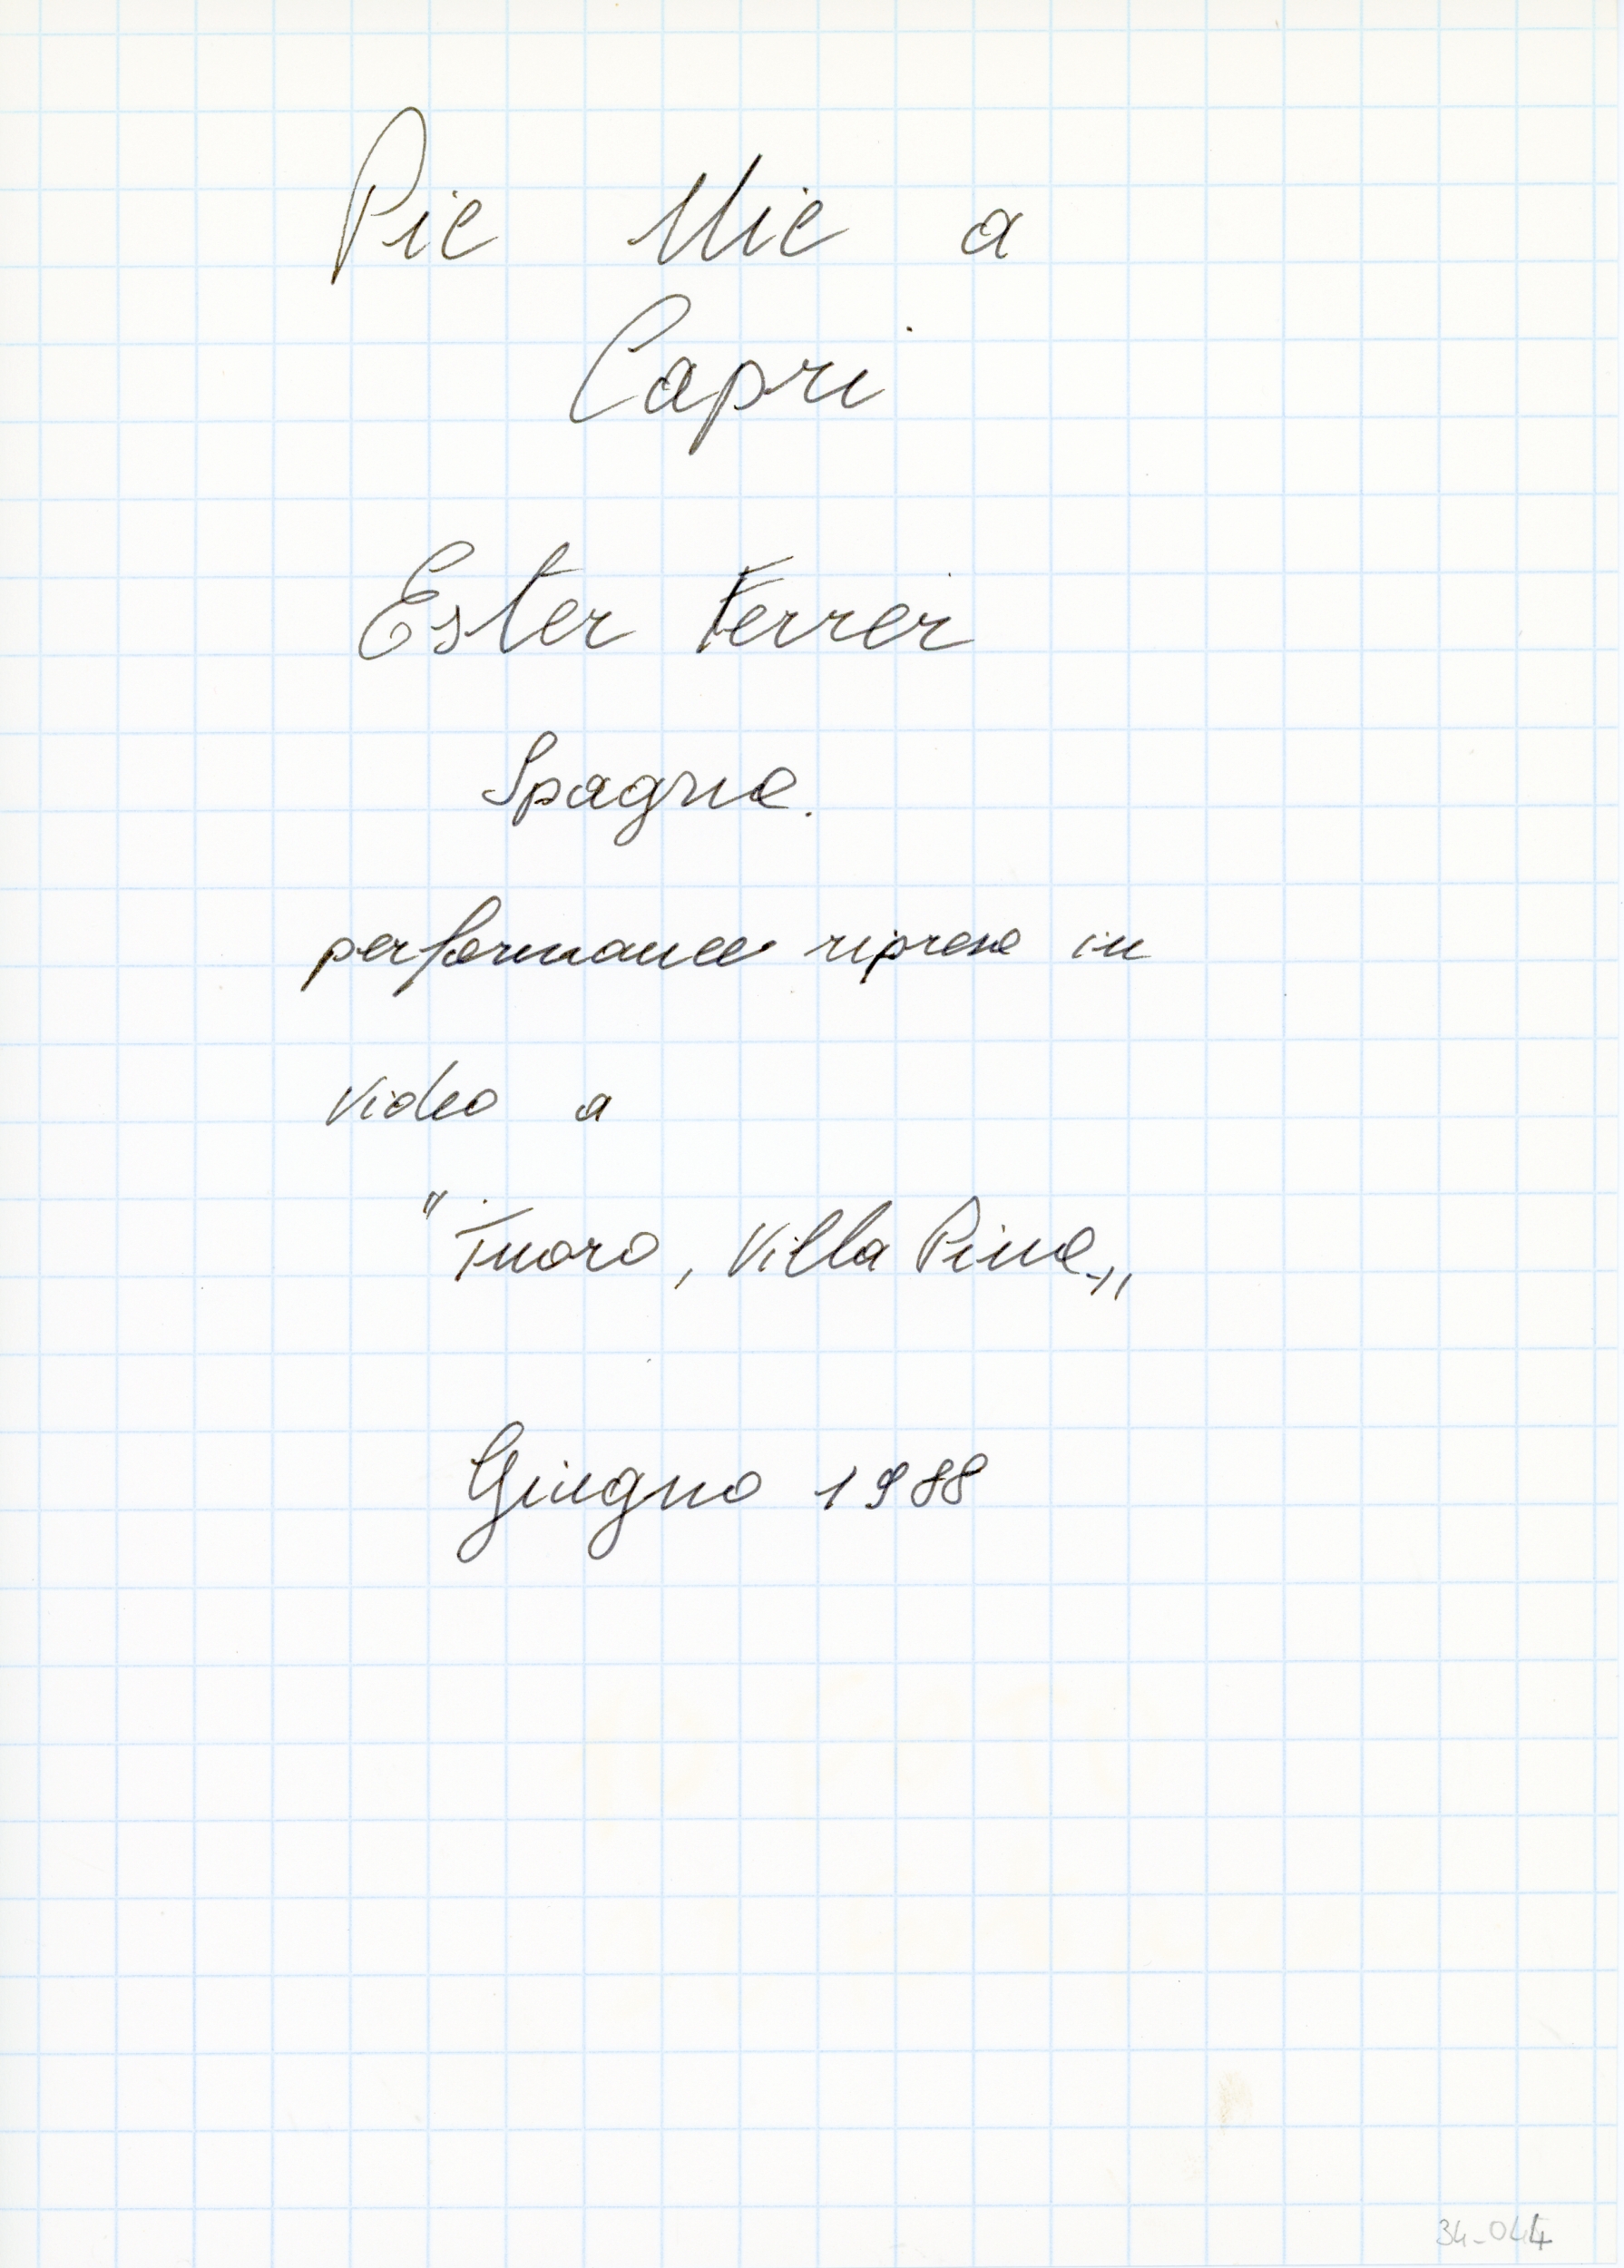 Pic Nic a
Capri
Ester Ferrer
Spagna.
performance ripresa in
video a
"Tuoro, Villa Pina"
Giugno 1988
34-044